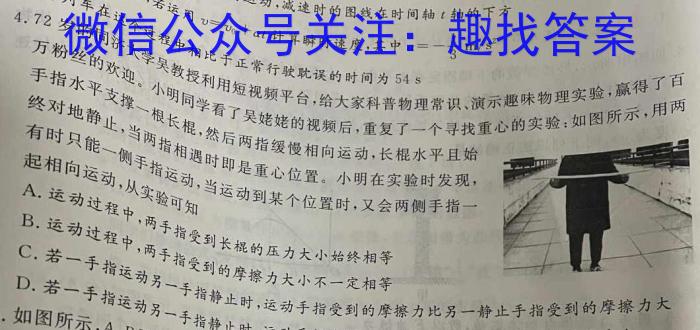 减速时的图线在时间轴t轴的下方
列车在这个过程中相比于正常行驶耽误的时间为54 s
微信公众号关注：趣找答案
4.72岁的同济大学吴教授利用短视频平台，给大家科普物理常识、演示趣味物理实验，赢得了百
万粉丝的欢迎。小明同学看了吴姥姥的视频后，重复了一个寻找重心的实验：如图所示，用两
手指水平支撑一根长棍，然后两指缓慢相向运动，长棍水平且始
终对地静止，当两指相遇时即是重心位置。小明在实验时发现，
有时只能一侧手指运动，当运动到某个位置时，又会两侧手指一
起相向运动，从实验可知
A. 运动过程中，两手指受到长棍的压力大小始终相等
B. 运动过程中，两手指受到的摩擦力大小不一定相等
C. 若一手指运动另一手指静止时，运动手指受到的摩擦力比另一静止手指受到的摩擦力大
D. 若一手指运动另一手指静止时，
.如图所示，A